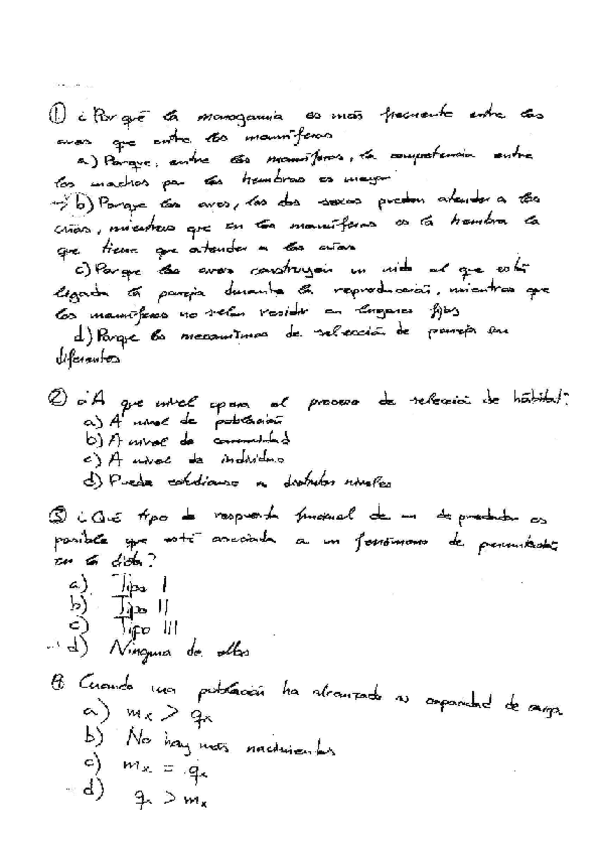 ① ¿Por qué la monogamia es más frecuente entre las
aves que entre los mamíferos
a) Porque, entre los mamíferos, la competencia entre
los machos por las hembras es mayor
→ b) Porque las aves, los dos sexos pueden atender a las
crías, mientras que en los mamíferos es la hembra la
que tiene que atender a las crías
c) Porque las aves construyen un nido al que está
ligada la pareja durante la reproducción, mientras que
los mamíferos no suelen residir en lugares fijos
d) Porque los mecanismos de selección de pareja son
diferentes
② ¿A que nivel opera el proceso de selección de hábitat?
a) A nivel de población
b) A nivel de comunidad
c) A nivel de individuo
d) Puede estudiarse a distintos niveles
③ ¿Qué tipo de respuesta funcional de un depredador es
posible que esté asociada a un fenómeno de
en la dieta?
a) Tipo I
b) Tipo II
c) Tipo III
d) Ninguna de ellas
4 Cuando una población ha alcanzado su capacidad de carga
a) mx > qx
b) No hay más nacimientos
c) mx = qx
d) qx > mx